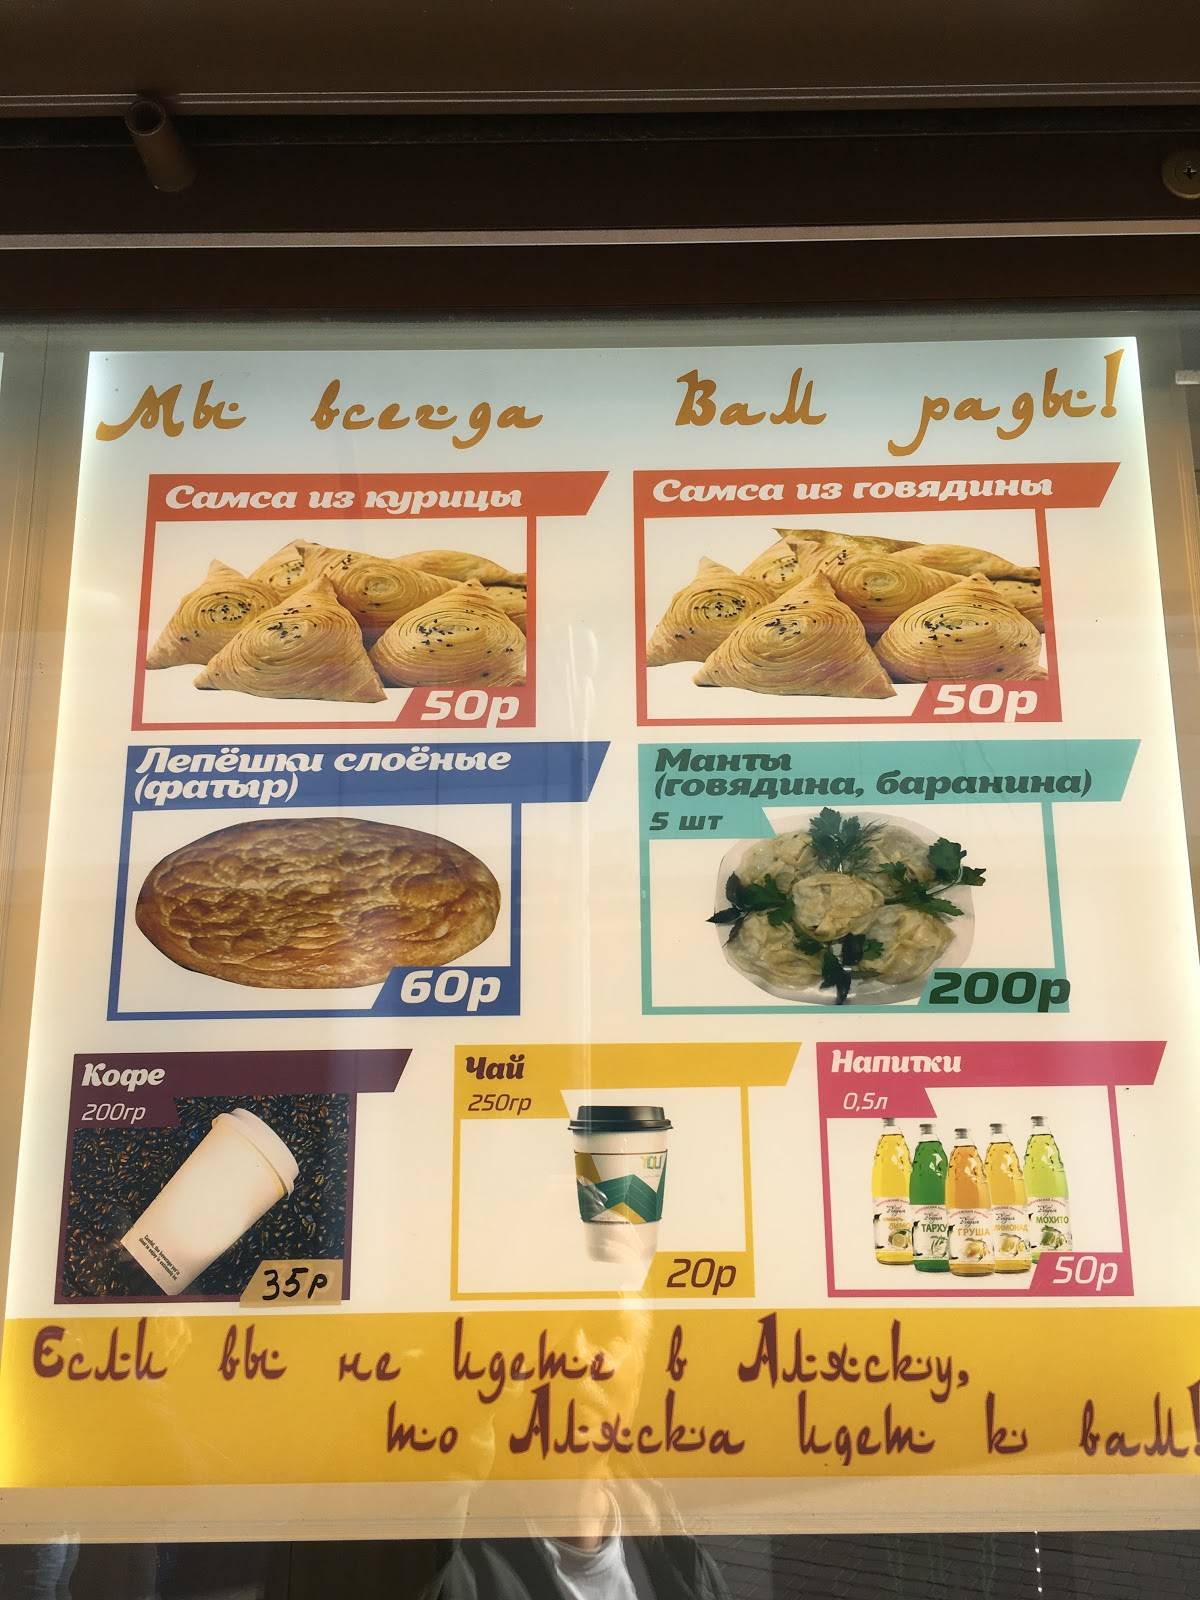 Мы всегда Вам рады!
Самса из курицы
50р
Самса из говядины
50р
Лепёшки слоёные
(фатыр)
60р
Манты
(говядина, баранина)
5 шт
200р
Кофе
200гр
35р
Чай
250гр
YOU
20р
Напитки
0,5л
ТАРХУ
ГРУША
ЛИМОНАД
МОХИТО
50р
Если вы не идете в Аляску,
то Аляска идет к вам!